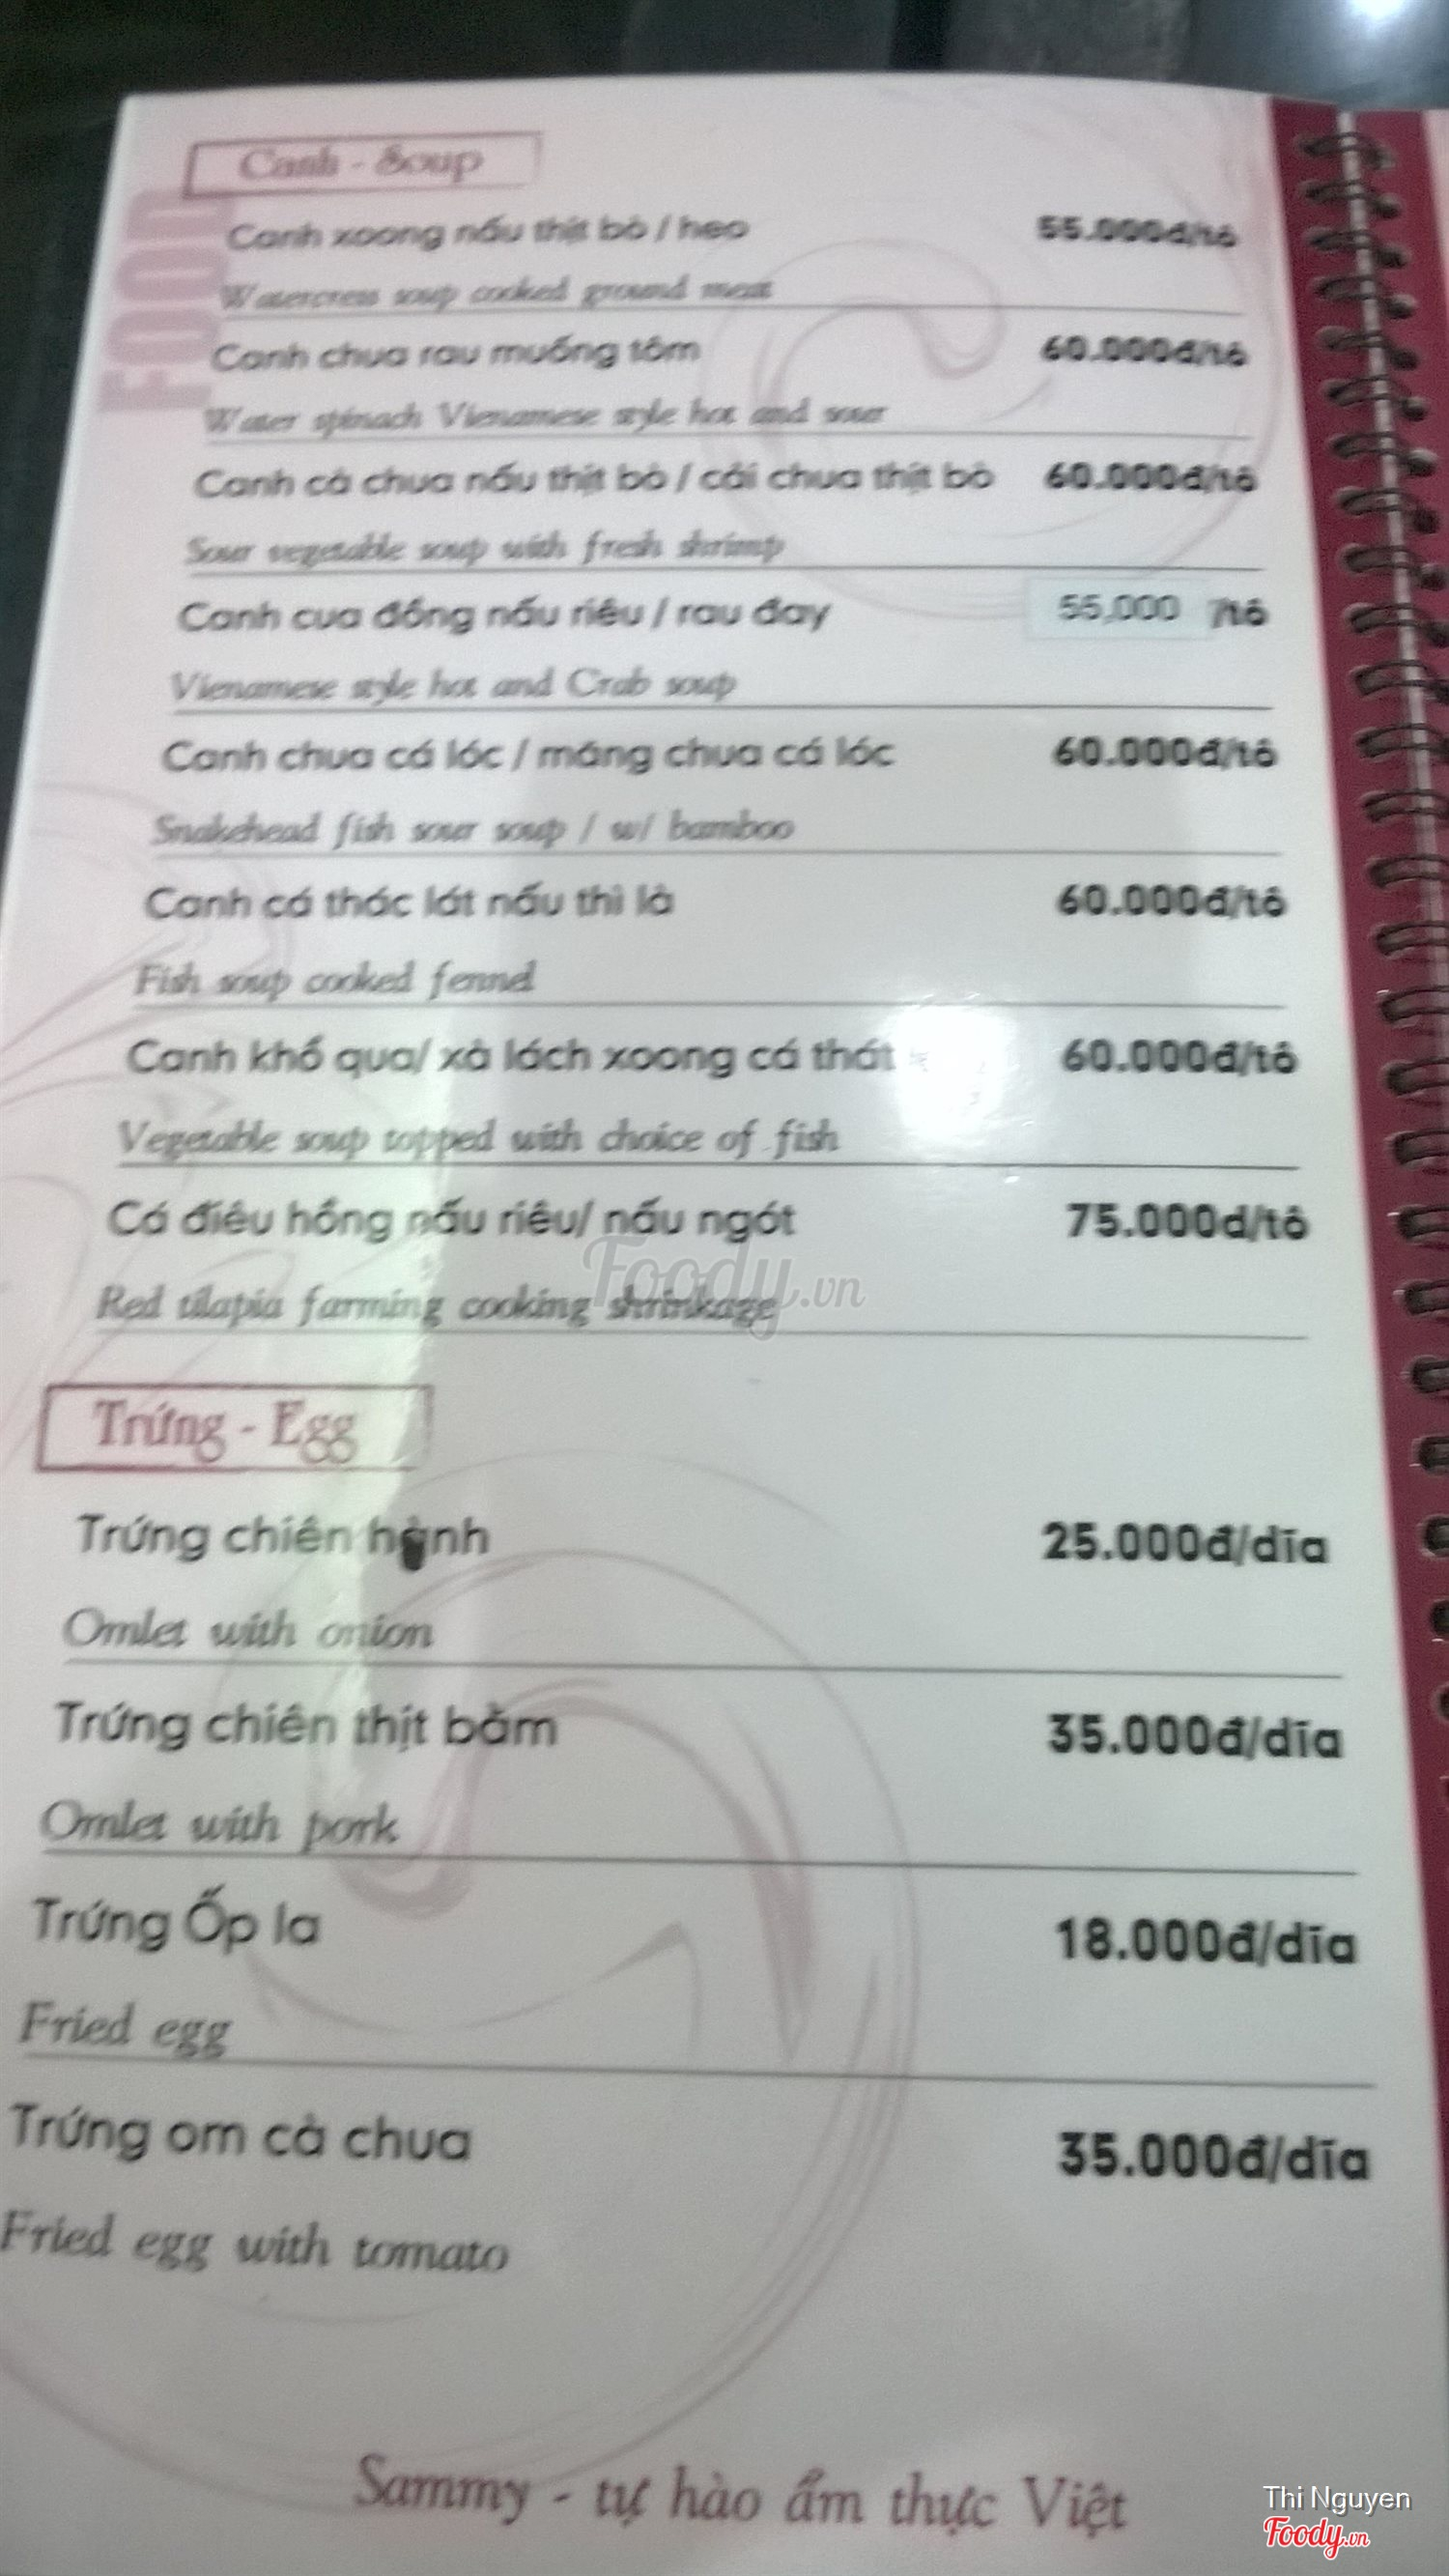 FOOD
Canh - Soup
Canh xoong nấu thịt bò / heo 55.000đ/tô
Watercress soup cooked ground meat
Canh chua rau muống tôm 60.000đ/tô
Water spinach Vienamese style hot and sour
Canh cà chua nấu thịt bò / cải chua thịt bò 60.000đ/tô
Sour vegetable soup with fresh shrimp
Canh cua đồng nấu riêu / rau đay 55,000 /tô
Vienamese style hot and Crab soup
Canh chua cá lóc / măng chua cá lóc 60.000đ/tô
Snakehead fish sour soup / w/ bamboo
Canh cá thác lát nấu thì là 60.000đ/tô
Fish soup cooked fennel
Canh khổ qua/ xà lách xoong cá thát 60.000đ/tô
Vegetable soup topped with choice of fish
Cá điêu hồng nấu riêu/ nấu ngót 75.000d/tô
Foody.vn
Red tilapia farming cooking shrinkage
Trứng - Egg
Trứng chiên hành 25.000đ/dĩa
Omlet with onion
Trứng chiên thịt bằm 35.000đ/dĩa
Omlet with pork
Trứng Ốp la 18.000đ/dĩa
Fried egg
Trứng om cà chua 35.000đ/dĩa
Fried egg with tomato
Sammy - tự hào ẩm thực Việt
Thi Nguyen
Foody.vn